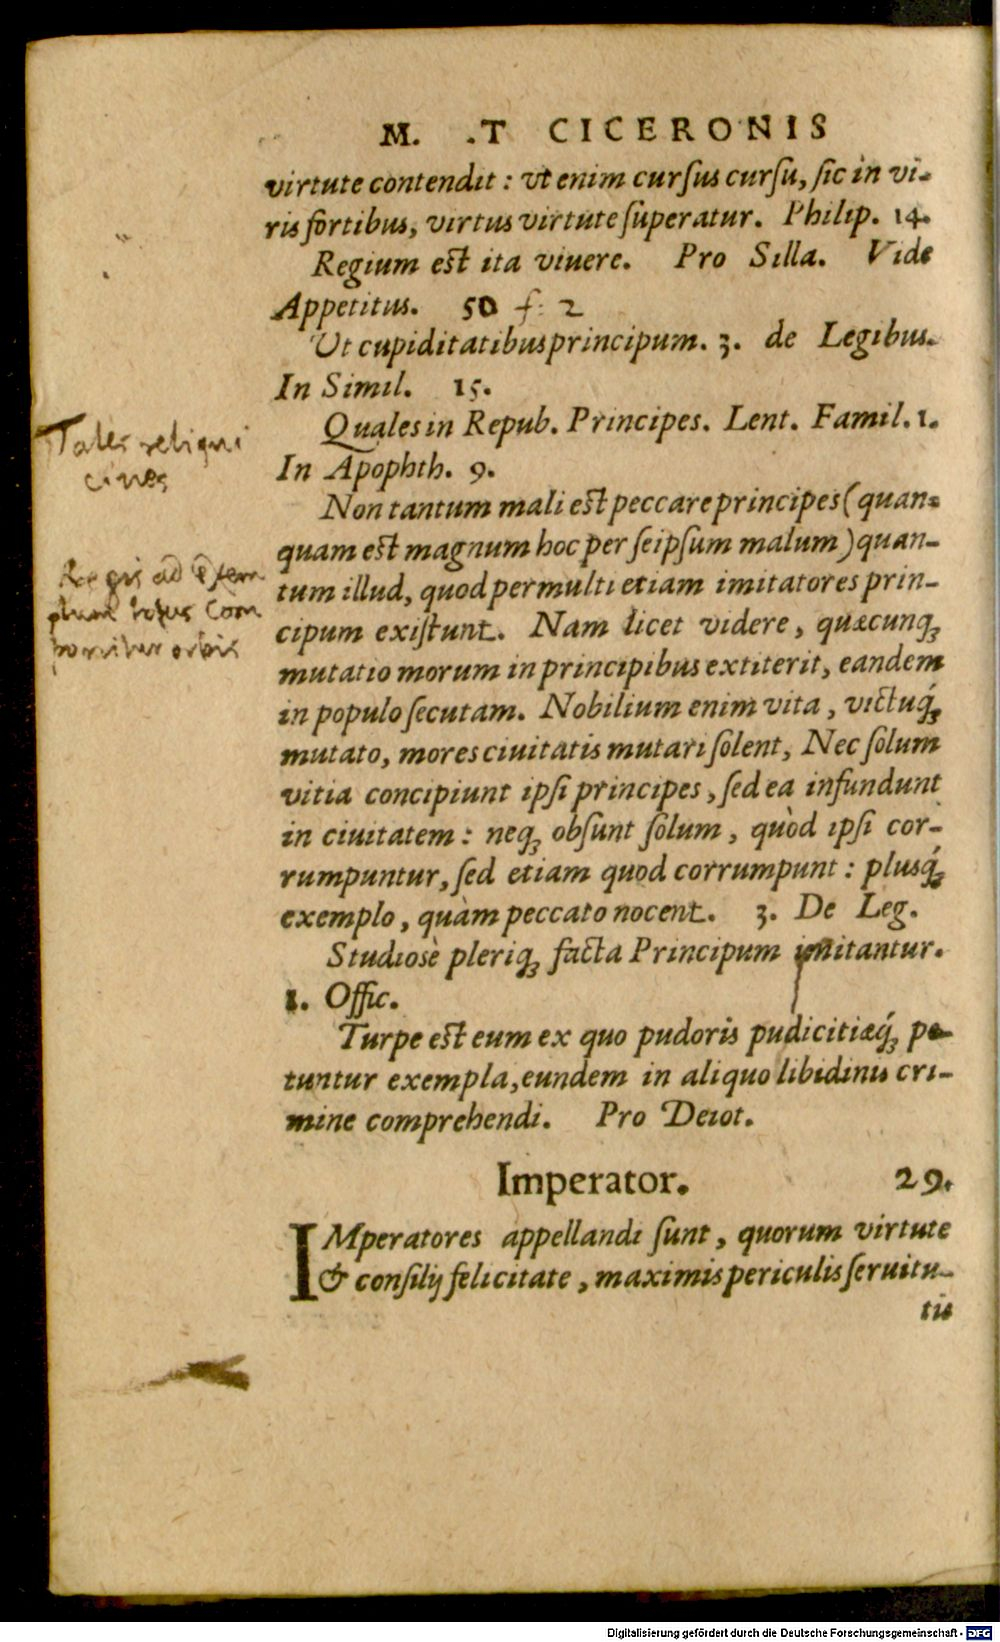 M. .T CICERONIS
virtute contendit : vt enim cursus cursu, sic in vi-
ris fortibus, virtus virtute superatur. Philip. 14.
Regium est ita viuere. Pro Silla. Vide
Appetitus. 50 f: 2
Ut cupiditatibus principum. 3. de Legibus.
In Simil. 15.
Quales in Repub. Principes. Lent. Famil. 1.
In Apophth. 9.
Tales reliqui
ciues
Non tantum mali est peccare principes ( quan-
quam est magnum hoc per seipsum malum ) quan-
tum illud, quod permulti etiam imitatores prin-
cipum existunt. Nam licet videre, quæcunq;
mutatio morum in principibus extiterit, eandem
in populo secutam. Nobilium enim vita, victuq́;
mutato, mores ciuitatis mutari solent, Nec solum
vitia concipiunt ipsi principes, sed ea infundunt
in ciuitatem : neq; obsunt solum, quòd ipsi cor-
rumpuntur, sed etiam quod corrumpunt : plusq́;
exemplo, quàm peccato nocent. 3. De Leg.
Regis ad exem
plum totus com
ponitur orbis
Studiosè pleriq; facta Principum imitantur.
1. Offic.
Turpe est eum ex quo pudoris pudicitiæq́; pe-
tuntur exempla, eundem in aliquo libidinis cri-
mine comprehendi. Pro Deiot.
Imperator. 29.
IMperatores appellandi sunt, quorum virtute
& consilij felicitate, maximis periculis seruitu-
tis
Digitalisierung gefördert durch die Deutsche Forschungsgemeinschaft - DFG